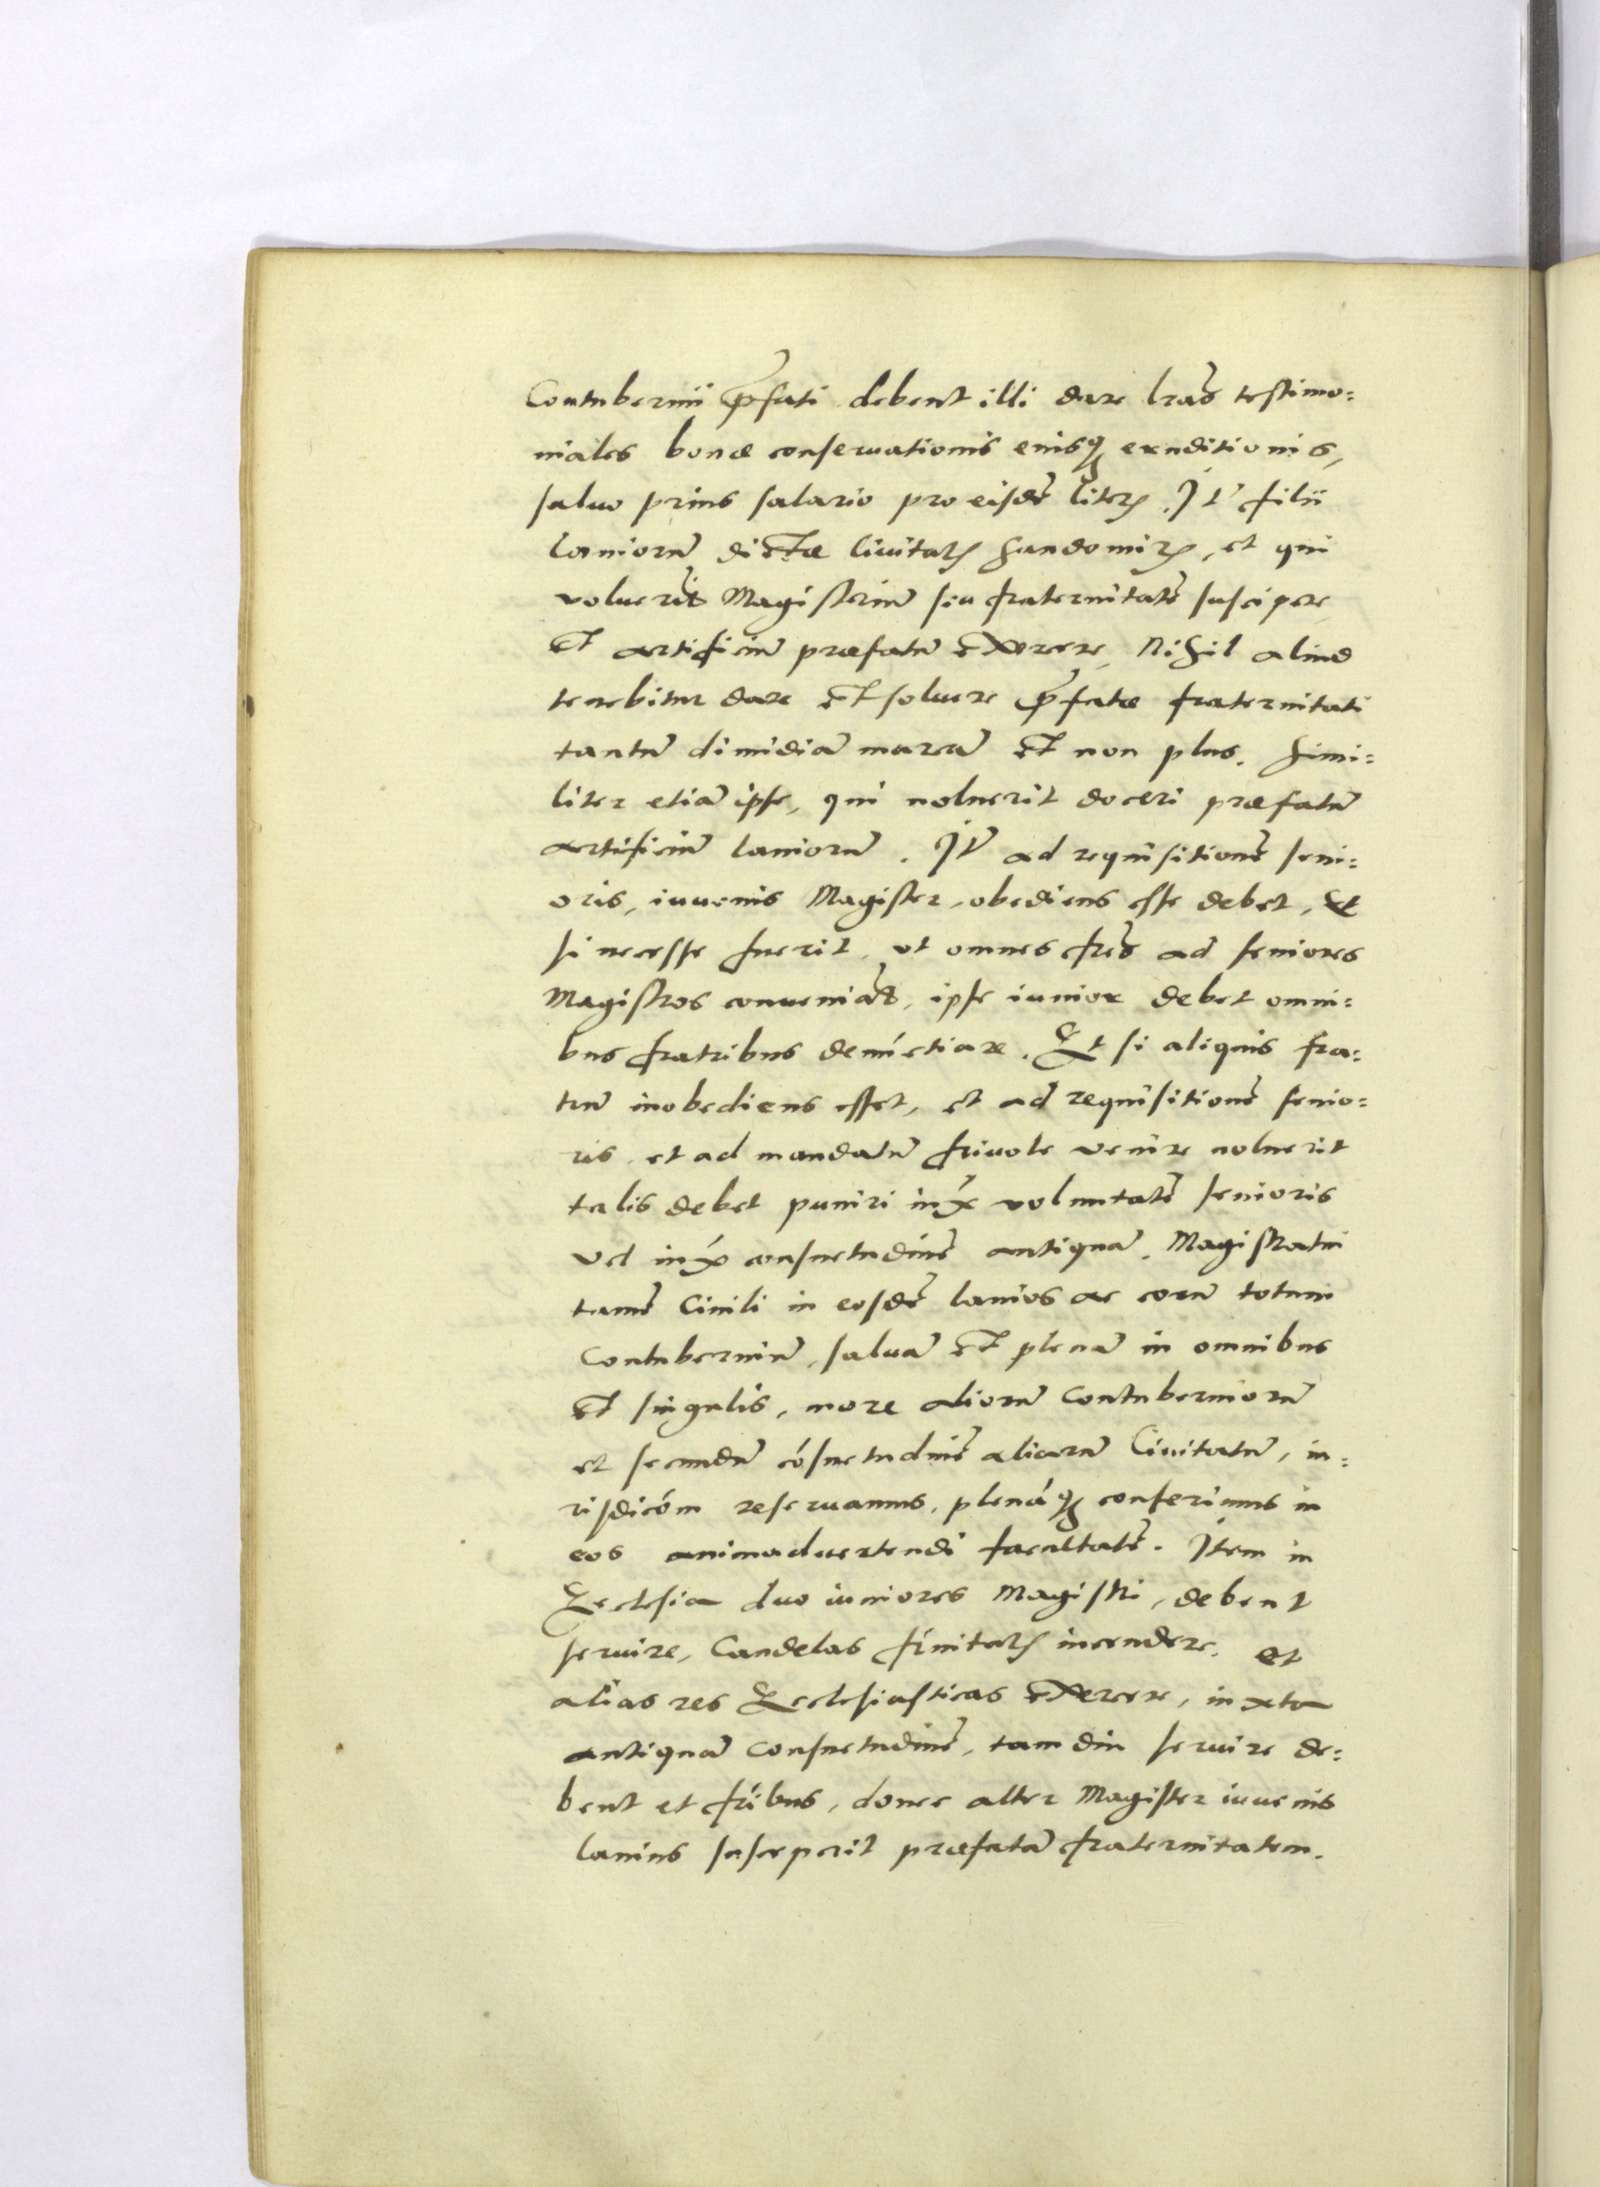 Contubernii p̃fati debent illi dare lr̃as testimo=
niales bonæ conseruationis eiusq; eruditionis,
saluo prius salario pro eisdē literis. Jt̃ filii
laniorū dictæ Ciuitatis Sandomiris, et qui
voluerit Magisteriū siu fraternitatē suscipere
et artificiū præfatū exercere, Nihil aliud
tenebitur dare et soluere p̃fatæ fraternitati
tantū dimidiā marcā et non plus. Simi=
liter etiā ipse, qui noluerit doceri præfatū
artificiū laniorū. Jt̃ ad requisitionē seni=
oris, iuuenis Magister, obediens esse debet, Et
si necesse fuerit, ut omnes fr̃es ad seniores
Magistros conueniāt, ipse iunior debet omni=
bus fratribus denūctiare. Et si aliquis fra=
trū inobediens esset, et ad requisitionē senio=
ris, et ad mandatū friuole venire noluerit
talis debet puniri iux̃ voluntatē senioris
vel iux̃ consuetudinē antiquā. Magistratui
tamē Ciuili in eosdē lanios ac eorū totum
Contuberniū, saluā et plenā in omnibus
et singulis, more aliorū Contuberniorū
et secundū cōsuetudinē aliarū Ciuitatū, iu=
risdicōm reseruamus, plenāq; conferimus in
eos animaduertendi facultatē. Jtem in
Ecclesia duo iuniores Magistri, debent
seruire, Candelas frñitatis incendere, et
alias res Ecclesiasticas exercere, iuxta
antiquā Consuetudinē, tam diu seruire de=
bent et frībus, donec alter Magister iuuenis
lanius susceperit præfatā fraternitatem.